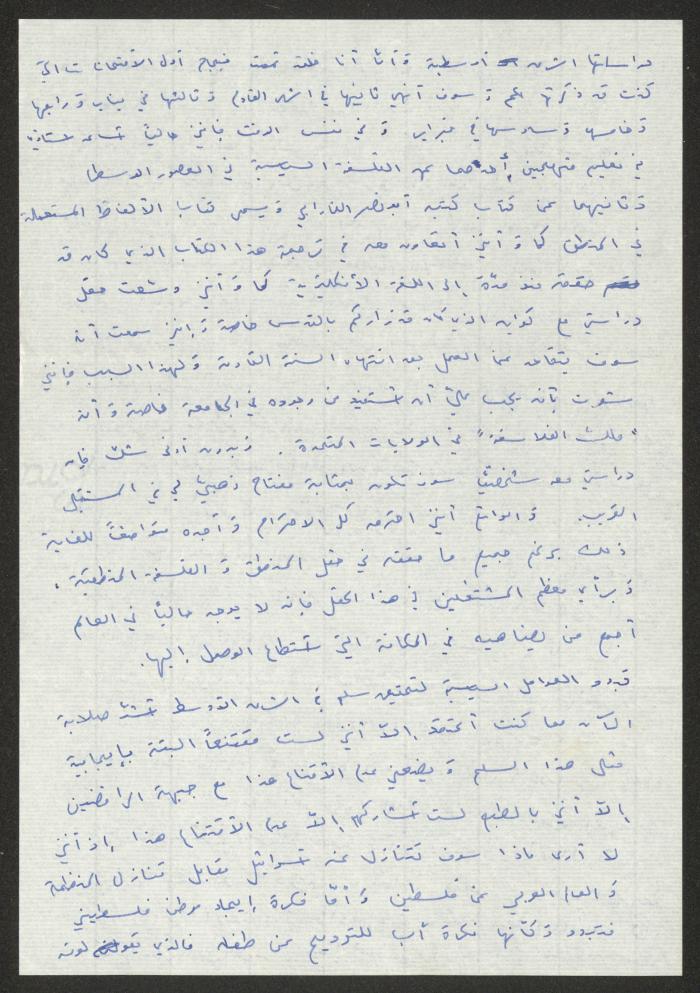 دراساتها الشرق أوسطية وأما أنا فقد تمت بنجاح أول الامتحانات التي
كنت قد ذكرتها لكم وسوف أنهي ثانيها في الشهر القادم وثالثها في نيسان ورابعها
وخامسها وسادسها في فبراير. وفي نفس الوقت فإنني حالياً أساعد أستاذين
في تعليم منهجين أحدهما عن الفلسفة السياسية في العصور الوسطى
وثانيهما عن كتاب كتبه أبو نصر الفارابي ويسمى كتاب الألفاظ المستعملة
في المنطق كما وأنني أتعاون معه في ترجمة هذا الكتاب الذي كان قد
حققه منذ مدّة إلى اللغة الأنكليزية كما وأنني وسّعت حقل
دراستي مع كواين الذي كان قد زاركم بالقدس خاصة وإنني سمعت أنه
سوف يتقاعد عن العمل بعد انتهاء السنة القادمة ولهذا السبب فإنني
شعرت بأنه يجب عليّ أن أستفيد من وجوده في الجامعة خاصة وأنه
"ملك الفلاسفة" في الولايات المتحدة. وبدون أدنى شك فإن
دراستي معه شخصياً سوف تكون بمثابة مفتاح ذهبيّ لي في المستقبل
القريب. والواقع أنني احترمه كل الاحترام وأجده متواضعاً للغاية
وذلك برغم جميع ما حققه في حقل المنطق والفلسفة المنطقيّة،
وبرأي معظم المشتغلين في هذا الحقل فإنه لا يوجد حالياً في العالم
أجمع من يضاهيه في المكانة التي استطاع الوصول إليها.
تبدو العوامل السياسية لتحقيق سلم في الشرق الأوسط أشدّ صلابة
الآن مما كنت أعتقد إلاّ أنني لست مقتنعاً البتة بإيجابية
مثل هذا السلم ويضعني عدم الاقتناع هذا مع جبهة الرافضين
إلاّ أنني بالطبع لست أشاركهم إلاّ عدم الاقتناع هذا إذ أنني
لا أرى ماذا سوف تتنازل عنه إسرائيل مقابل تنازل المنظمة
والعالم العربي عن فلسطين وأمّا فكرة إيجاد موطن فلسطيني
فتبدو وكأنها فكرة أب للترويح عن طفله فالذي يقولونه